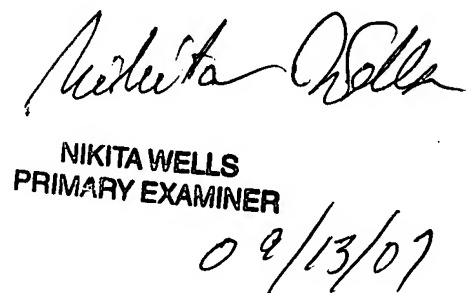 Nikita Wells
NIKITA WELLS
PRIMARY EXAMINER
09/13/07